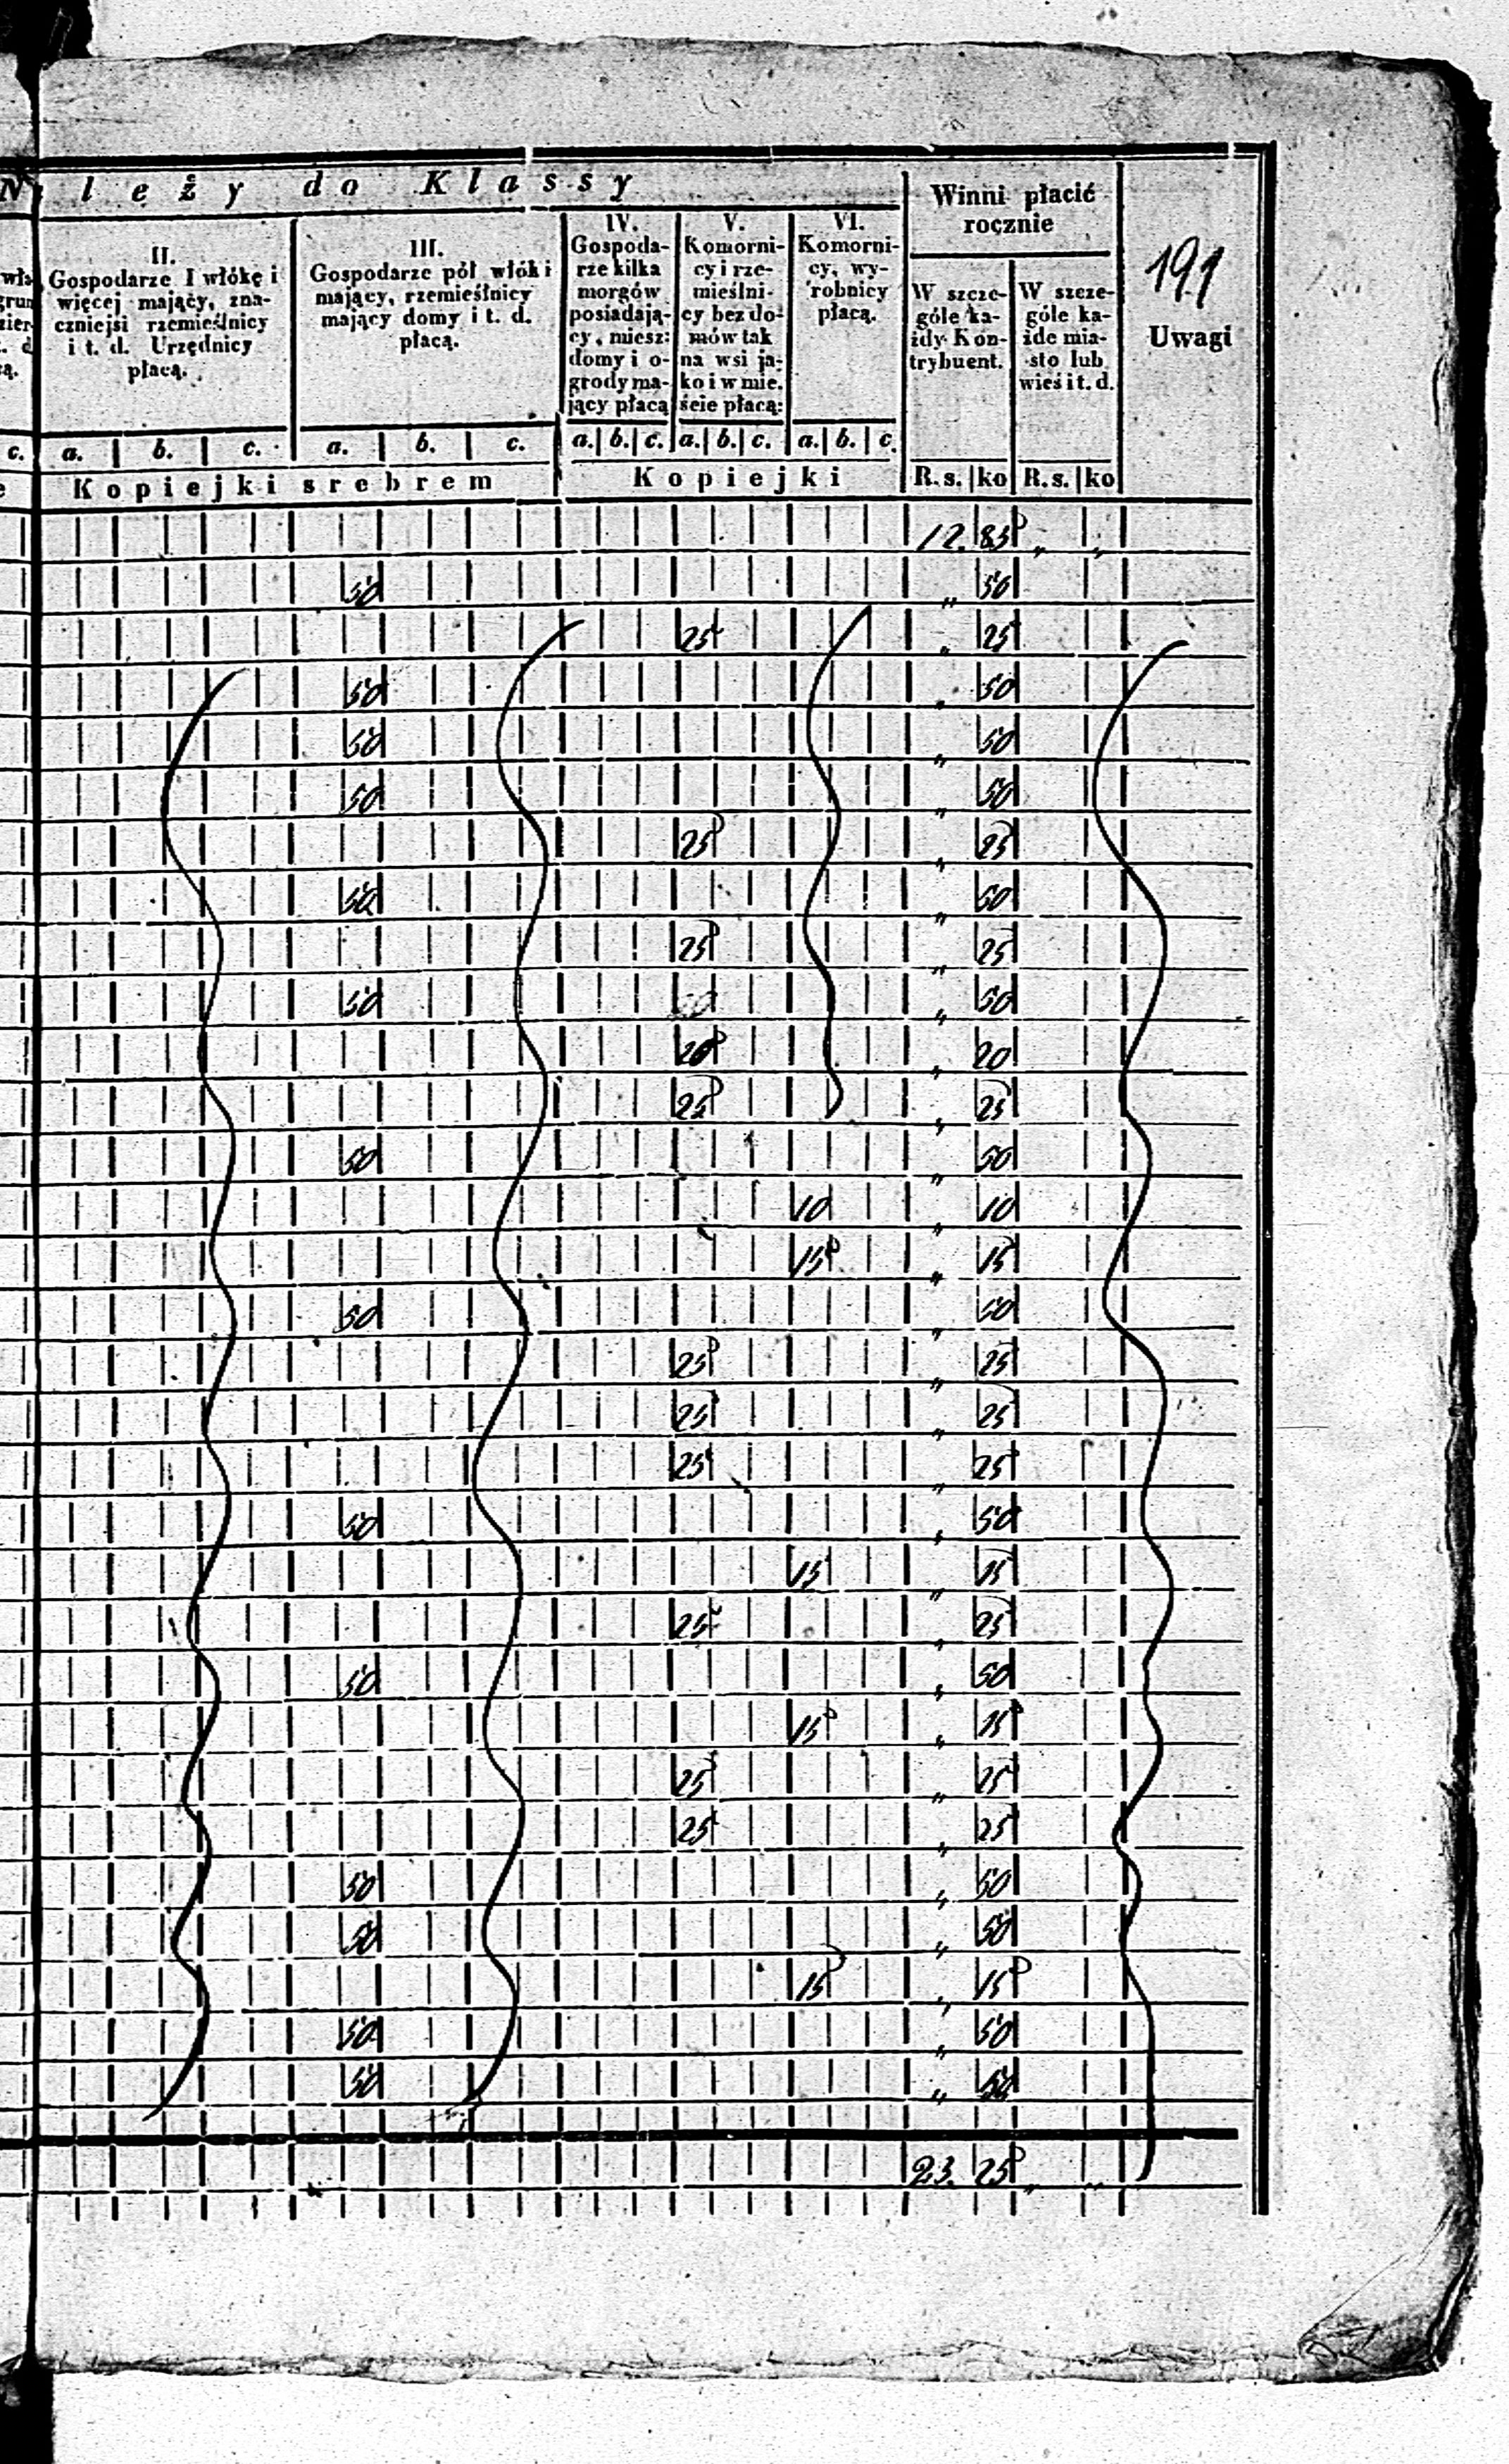 N l e ż y do Klassy
Winni płacić
rocznie
191
Uwagi
II.
Gospodarze I włókę i
więcej mający, zna-
czniejsi rzemieślnicy
i t. d. Urzędnicy
płacą.
III.
Gospodarze pół włóki
mający, rzemieślnicy
mający domy i t. d.
płacą.
IV.
Gospoda-
rze kilka
morgów
posiadają-
cy, miesz:
domy i o-
grody ma-
jący płacą
V.
Komorni-
cy i rze-
mieślni-
cy bez do-
mów tak
na wsi ja-
ko i w mie.
ście płacą:
VI.
Komorni-
cy, wy-
robnicy
płacą.
W szcze-
góle ka-
żdy Kon-
trybuent.
W szcze-
góle ka-
żde mia-
sto lub
wieś i t. d.
c. a. b. c. a. b. c. a. b. c. a. b. c. a. b. c.
Kopiejki srebrem Kopiejki R.s. ko R.s. ko
12. 85 " "
50 " 50
25 " 25
50 " 50
50 " 50
50 " 50
25 " 25
50 " 50
25 " 25
50 " 50
20 " 20
25 " 25
50 " 50
10 " 10
15 " 15
50 " 50
25 " 25
25 " 25
25 " 25
50 " 50
15 " 15
25 " 25
50 " 50
15 " 15
25 " 25
25 " 25
50 " 50
50 " 50
15 " 15
50 " 50
50 " 50
23. 25 " "